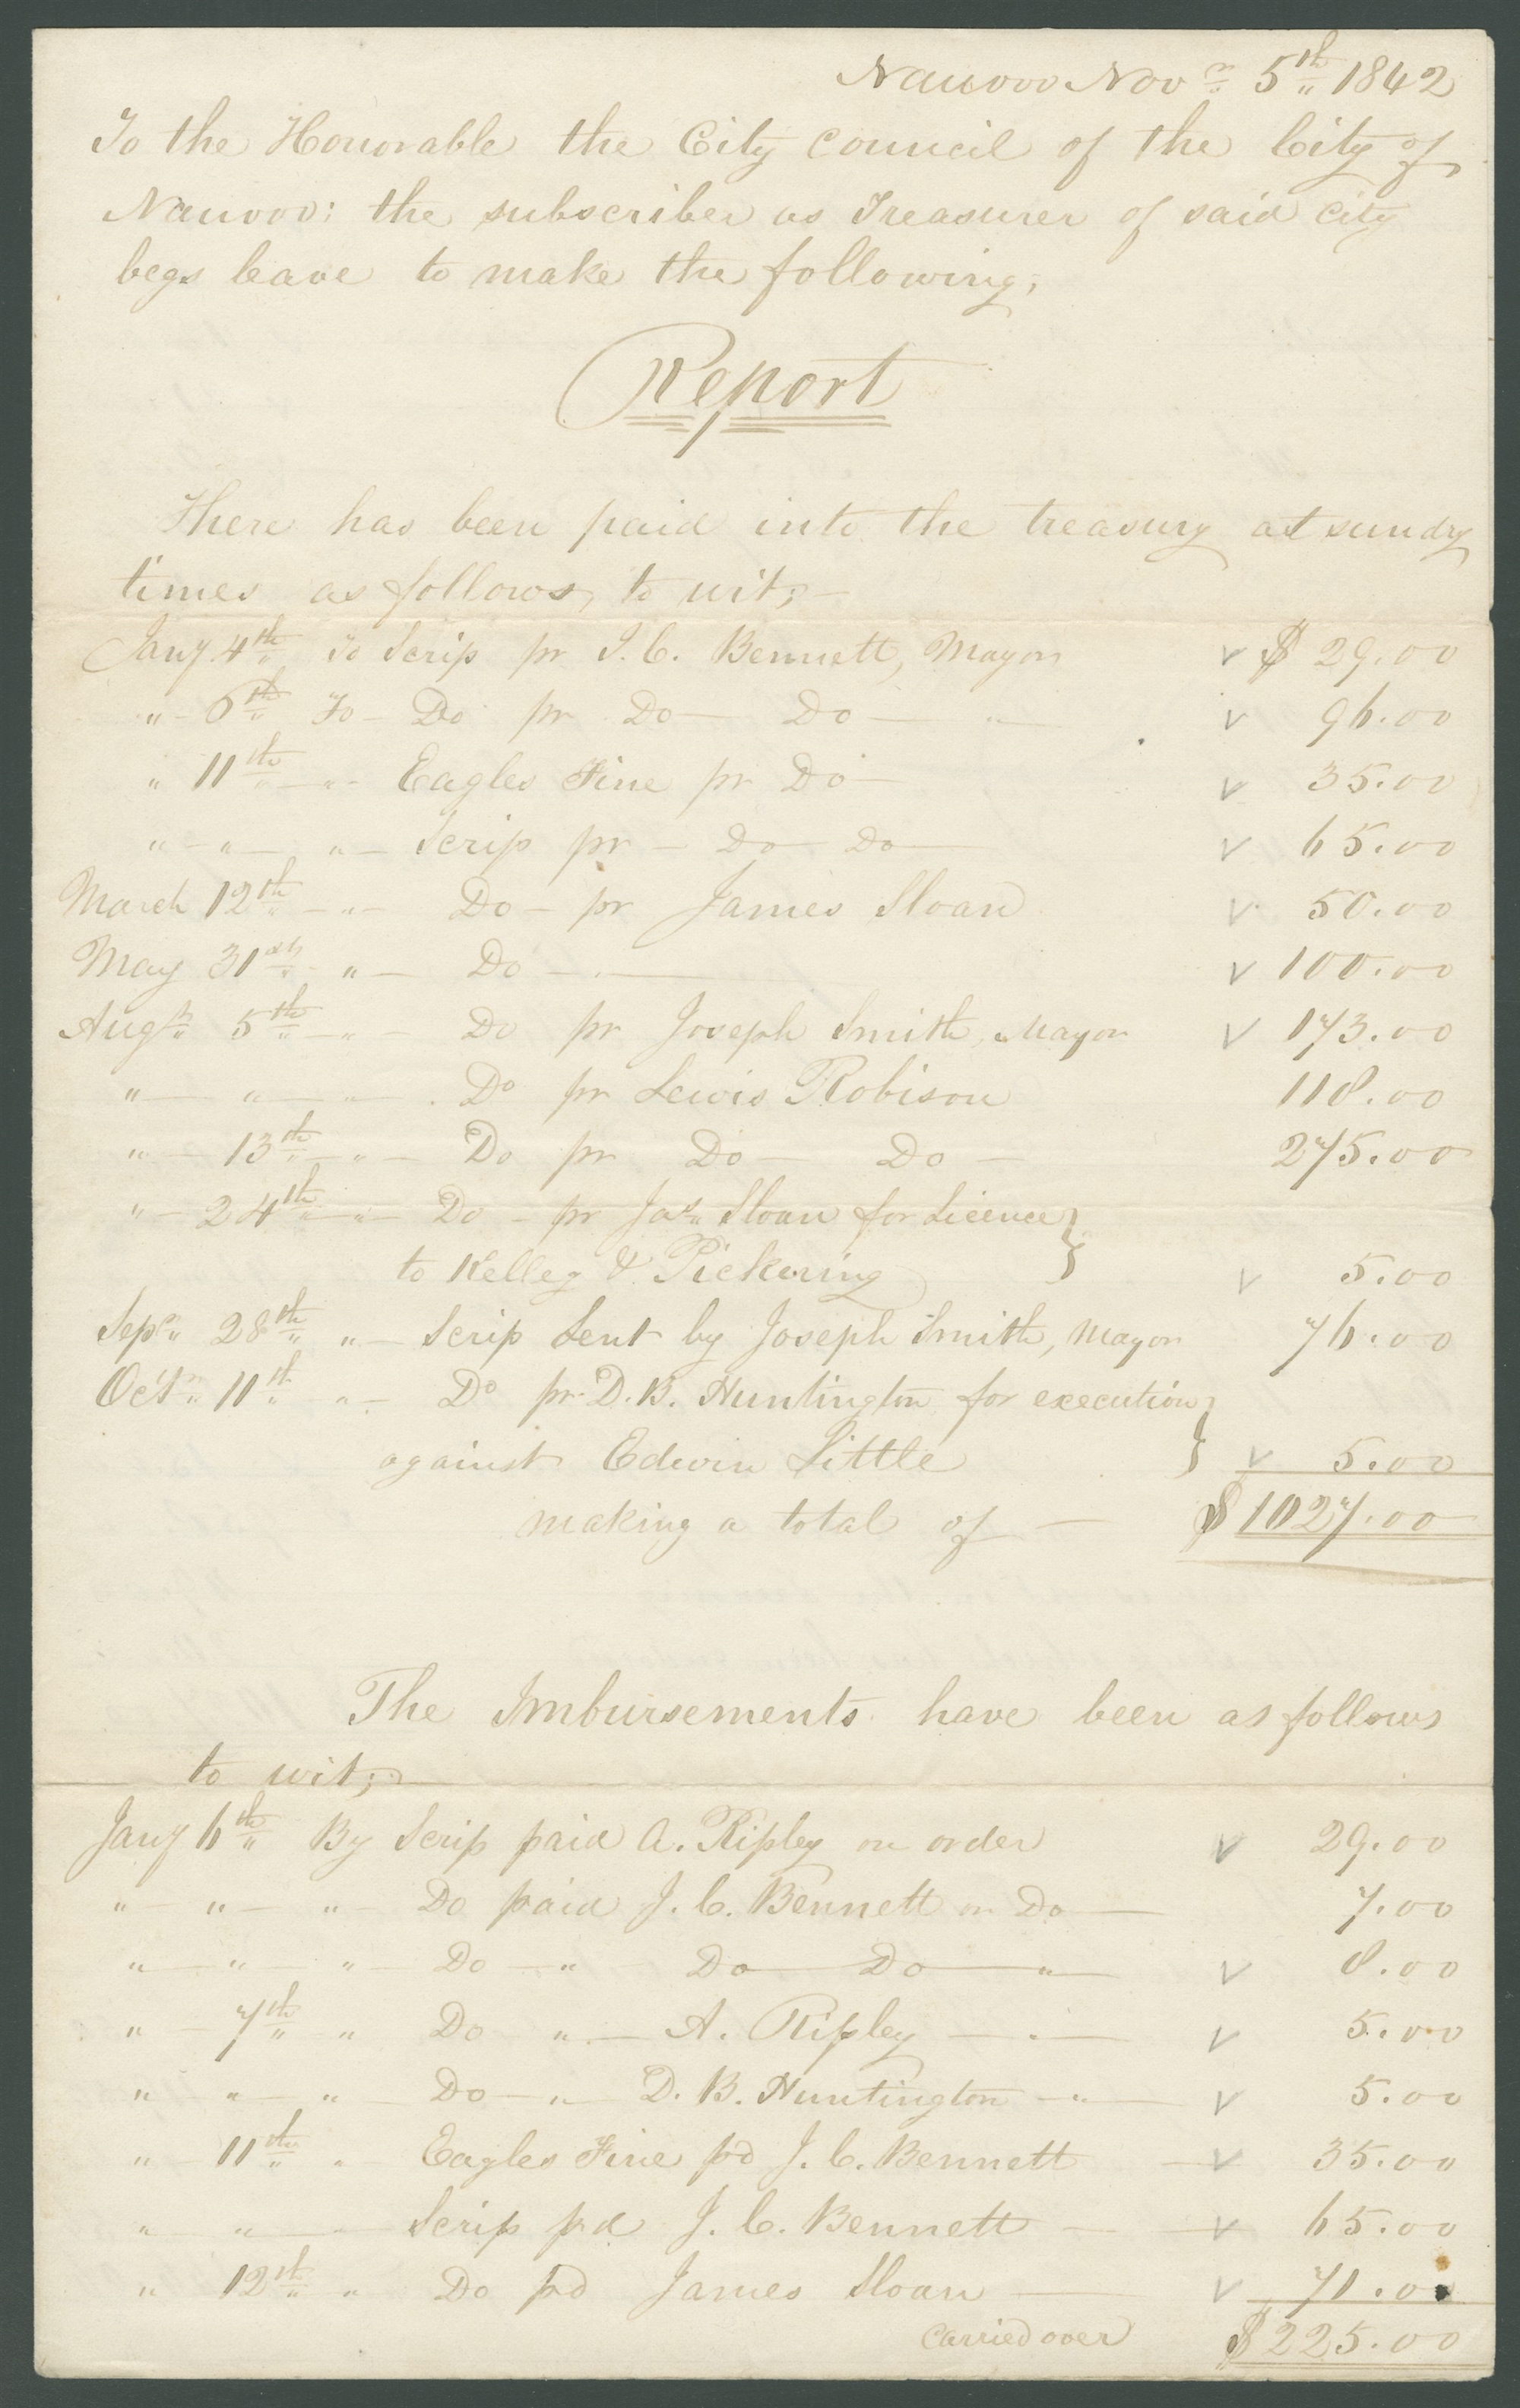 Nauvoo Novr 5th 1842
To the Honorable the City Council of the City of
Nauvoo: the subscriber as Treasurer of said City
begs leave to make the following;
Report
There has been paid into the treasury at sundry
times as follows, to wit;—
Jany 4th To Scrip pr J. C. Bennett, Mayor v $ 29.00
" – 6th To – Do pr Do — Do — " — v 96.00
" 11th — " – Eagles Fine pr Do — v 35.00
" – " — " – Scrip pr – Do – Do — v 65.00
March 12th – " – Do – pr James Sloan v 50.00
May 31st – " – Do — v 100.00
Augt 5th – " – Do pr Joseph Smith, Mayor v 173.00
" — " — " — Do pr Lewis Robison 118.00
" — 13th – " – Do pr Do — Do — 275.00
" – 24th – " – Do – pr Jas Sloan for Licence }
to Kelley & Pickering } v 5.00
Sepr 28th " – Scrip Sent by Joseph Smith, Mayor 76.00
Octr 11th " – Do pr D. B. Huntington for execution }
against Edwin Little } v 5.00
making a total of — $ 1027.00
The Imbursements have been as follows
to wit;—
Jany 6th By Scrip paid A. Ripley on order v 29.00
" – " – " – Do paid J. C. Bennett on Do — 7.00
" — " — " – Do – " Do — Do — " — v 8.00
" — 7th " Do " — A. Ripley — " — v 5.00
" – " – " Do – " – D. B. Huntington – " — v 5.00
" – 11th " Eagles Fine pd J. C. Bennett — v 35.00
" – " — " – Scrip pd J. C. Bennett — v 65.00
" 12th " Do pd James Sloan — v 71.00
Carried over $ 225.00